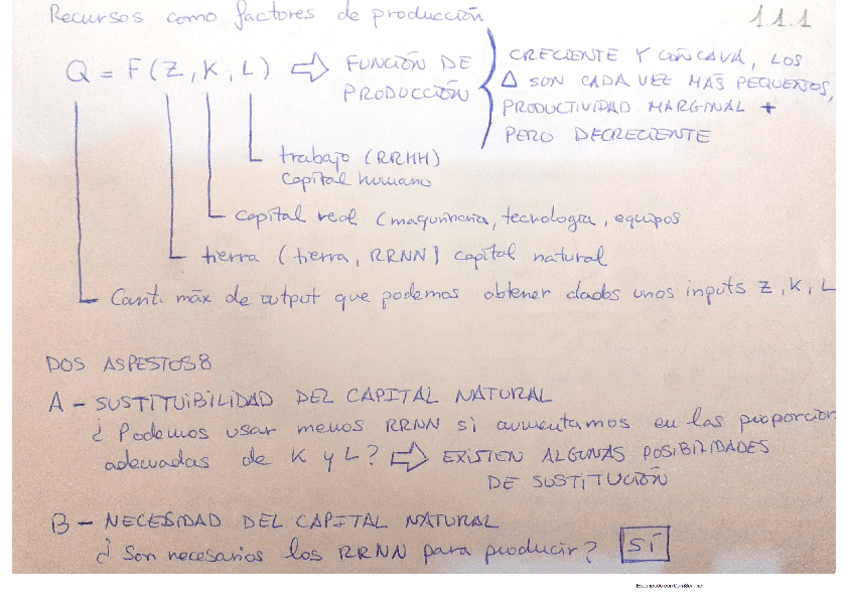 Recursos como factores de producción
11.1
Q = F (Z, K, L) ⇨ FUNCIÓN DE PRODUCCIÓN
CRECIENTE Y CÓNCAVA, LOS
Δ SON CADA VEZ MÁS PEQUEÑOS,
PRODUCTIVIDAD MARGINAL +
PERO DECRECIENTE
trabajo (RRHH)
capital humano
capital real (maquinaria, tecnología, equipos
tierra (tierra, RRNN) capital natural
Cant. máx de output que podemos obtener dados unos inputs Z, K, L
DOS ASPESTOS8
A - SUSTITUIBILIDAD DEL CAPITAL NATURAL
¿Podemos usar menos RRNN si aumentamos en las proporcion
adecuadas de K y L? ⇨ EXISTEN ALGUNAS POSIBILIDADES
DE SUSTITUCIÓN
B - NECESIDAD DEL CAPITAL NATURAL
¿Son necesarios los RRNN para producir? SÍ
Escaneado con CamScanner